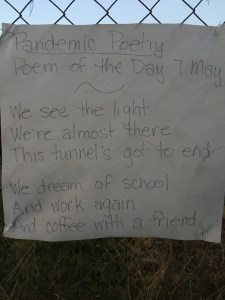 Pandemic Poetry
Poem of the Day 7 May
We see the light
We're almost there
This tunnel's got to end
We dream of school
And work again
And coffee with a friend